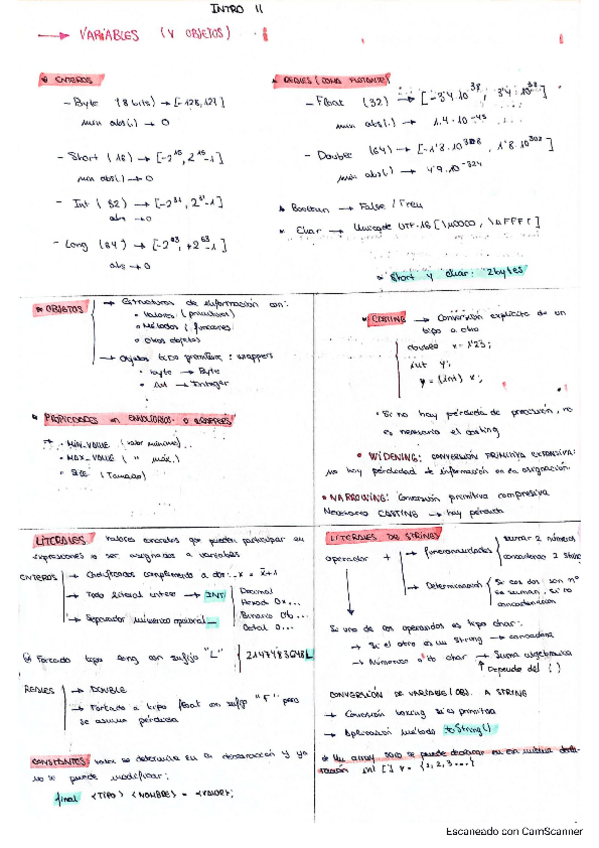 INTRO II
→ VARIABLES (Y OBJETOS)
ENTEROS
– Byte (8 bits) → [-128, 127]
min abs(.) → 0
– Short (16) → [-2^15, 2^15-1]
min abs(.) → 0
– Int (32) → [-2^31, 2^31-1]
abs → 0
– Long (64) → [-2^63, +2^63-1]
abs → 0
REALES (COMA FLOTANTE)
– Float (32) → [-3'4·10^38, 3'4·10^38]
min abs(.) → 1.4·10^-45
– Double (64) → [-1'8·10^308, 1'8·10^308]
min abs(.) → 4'9·10^-324
Boolean → False / True
Char → Unicode UTF-16 [\u0000, \uFFFF]
Short y char: 2 bytes
OBJETOS
→ Estructuras de información con:
• Valores (primitivos)
• Métodos / funciones
• Otros objetos
→ Objetos tipo primitivos: wrappers
• byte → Byte
• int → Integer
PROPIEDADES en ENVOLTORIOS o WRAPPERS
• MIN_VALUE (valor mínimo)
• MAX_VALUE ( " máx.)
• SIZE (Tamaño)
CASTING → Conversión explícita de un
tipo a otro
double x = 1'23;
int y;
y = (int) x;
• Si no hay pérdida de precisión, no
es necesario el casting
• WIDENING: CONVERSIÓN PRIMITIVA EXPANSIVA:
no hay pérdida de información en la asignación.
• NARROWING: Conversión primitiva compresiva
Necesario CASTING → hay pérdida
LITERALES Valores concretos que pueden participar en
expresiones o ser asignados a variables
ENTEROS → Codificados complemento a dos: -x = x̄+1
→ Todo literal entero → INT
Decimal
Hexad. 0x...
Binario 0b...
Octal 0...
→ Separador numérico opcional _
Forzado tipo long con sufijo "L" { 2147483648L
REALES → DOUBLE
→ Forzado a tipo float con sufijo "F" pero
se asume pérdida
CONSTANTES valor se determina en la declaración y ya
no se puede modificar:
final <TIPO> <NOMBRE> = <VALOR>;
LITERALES DE STRINGS
operador +
→ Funcionalidades
sumar 2 números
concatenando 2 String
→ Determinación
Si los dos son nº
se suman, si no
concatenación
Si uno de los operandos es tipo char:
→ Si el otro es un String → concatena
→ Numérico o otro char → Suma algebraica
↑ Depende del ( )
CONVERSIÓN DE VARIABLE (OBJ.) A STRING
→ Conversión boxing si es primitiva
→ Aplicación método toString()
Un array solo se puede declarar en una única decla-
ración int [] v = {1, 2, 3 ...}
Escaneado con CamScanner